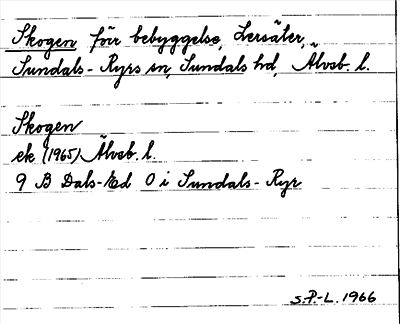 Skogen förr bebyggelse, Lersäter,
Sundals-Ryrs sn, Sundals hd, Älvsb. l.
Skogen
ek (1965) Älvsb. l.
9 B Dals-Ed O i Sundals-Ryr
S.P-L. 1966